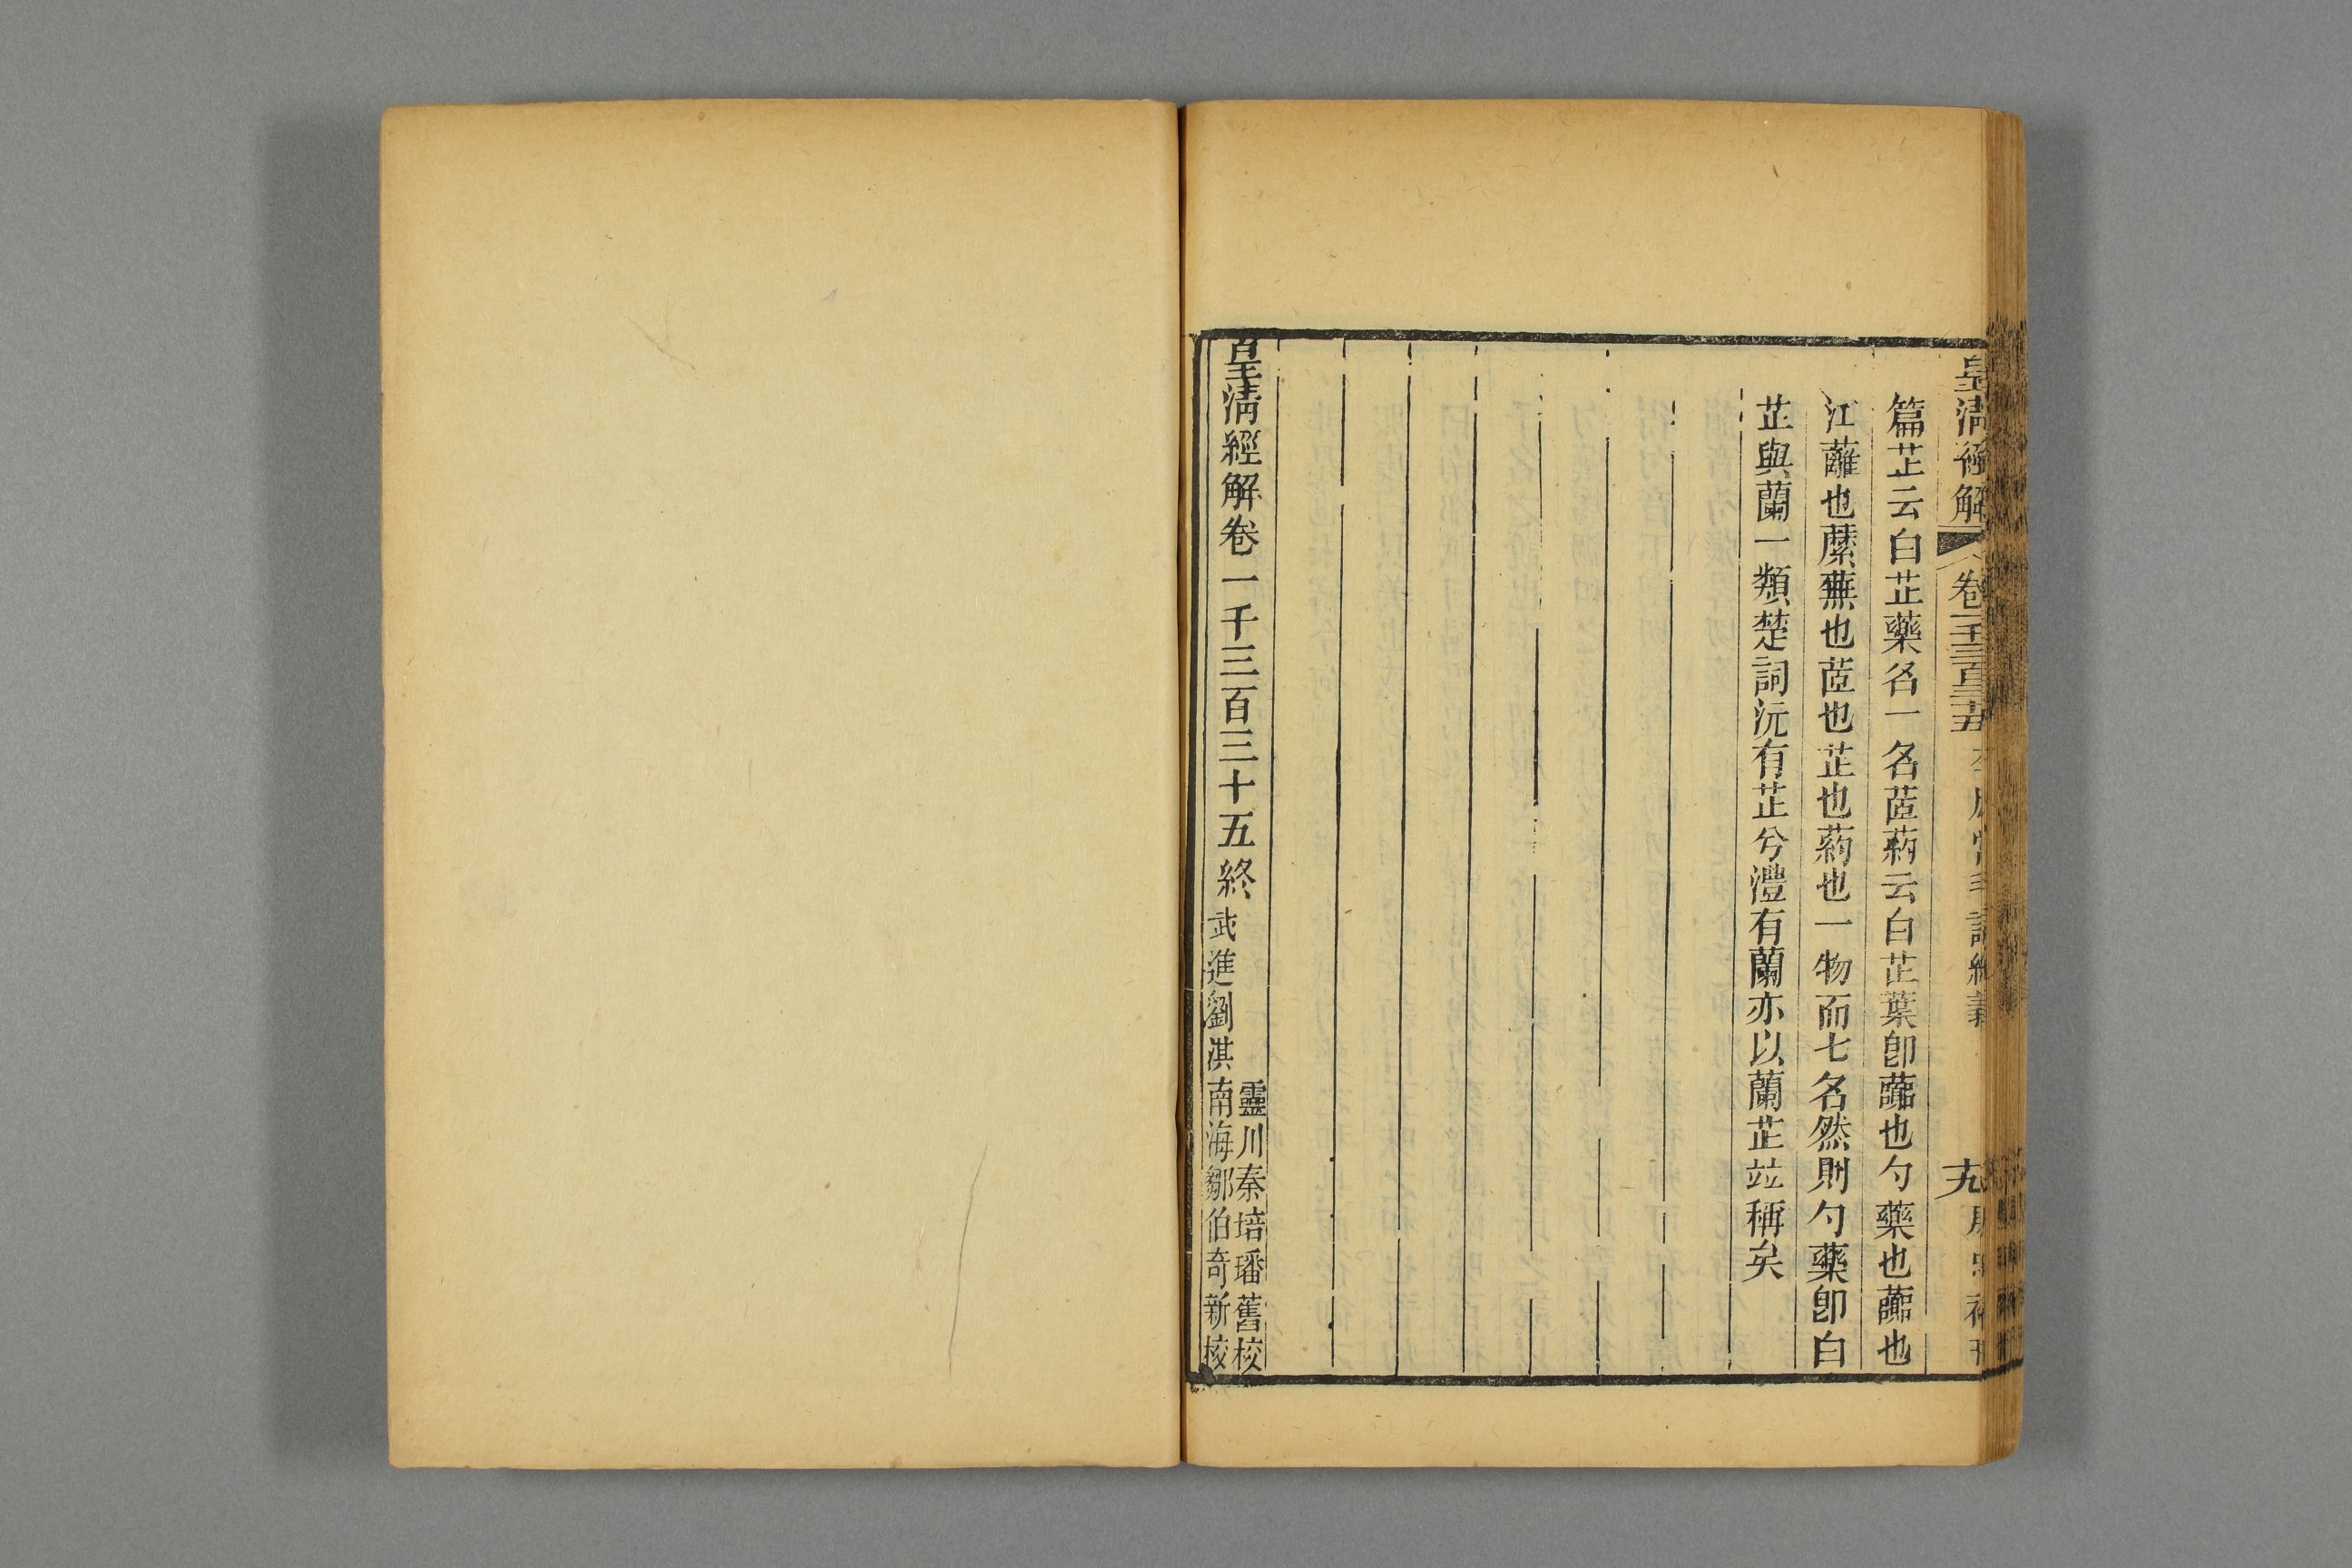 皇清經解
卷一千三百三十五
十九
篇芷云白芷藥名一名茝葯云白芷葉卽虈也勺藥也虈也
江蘺也蘪蕪也茝也芷也葯也一物而七名然則勺藥卽白
芷與蘭一類楚詞沅有芷兮澧有蘭亦以蘭芷竝稱矣
皇清經解卷一千三百三十五終
靈川秦培璠舊校
武進劉淇南海鄒伯奇新校